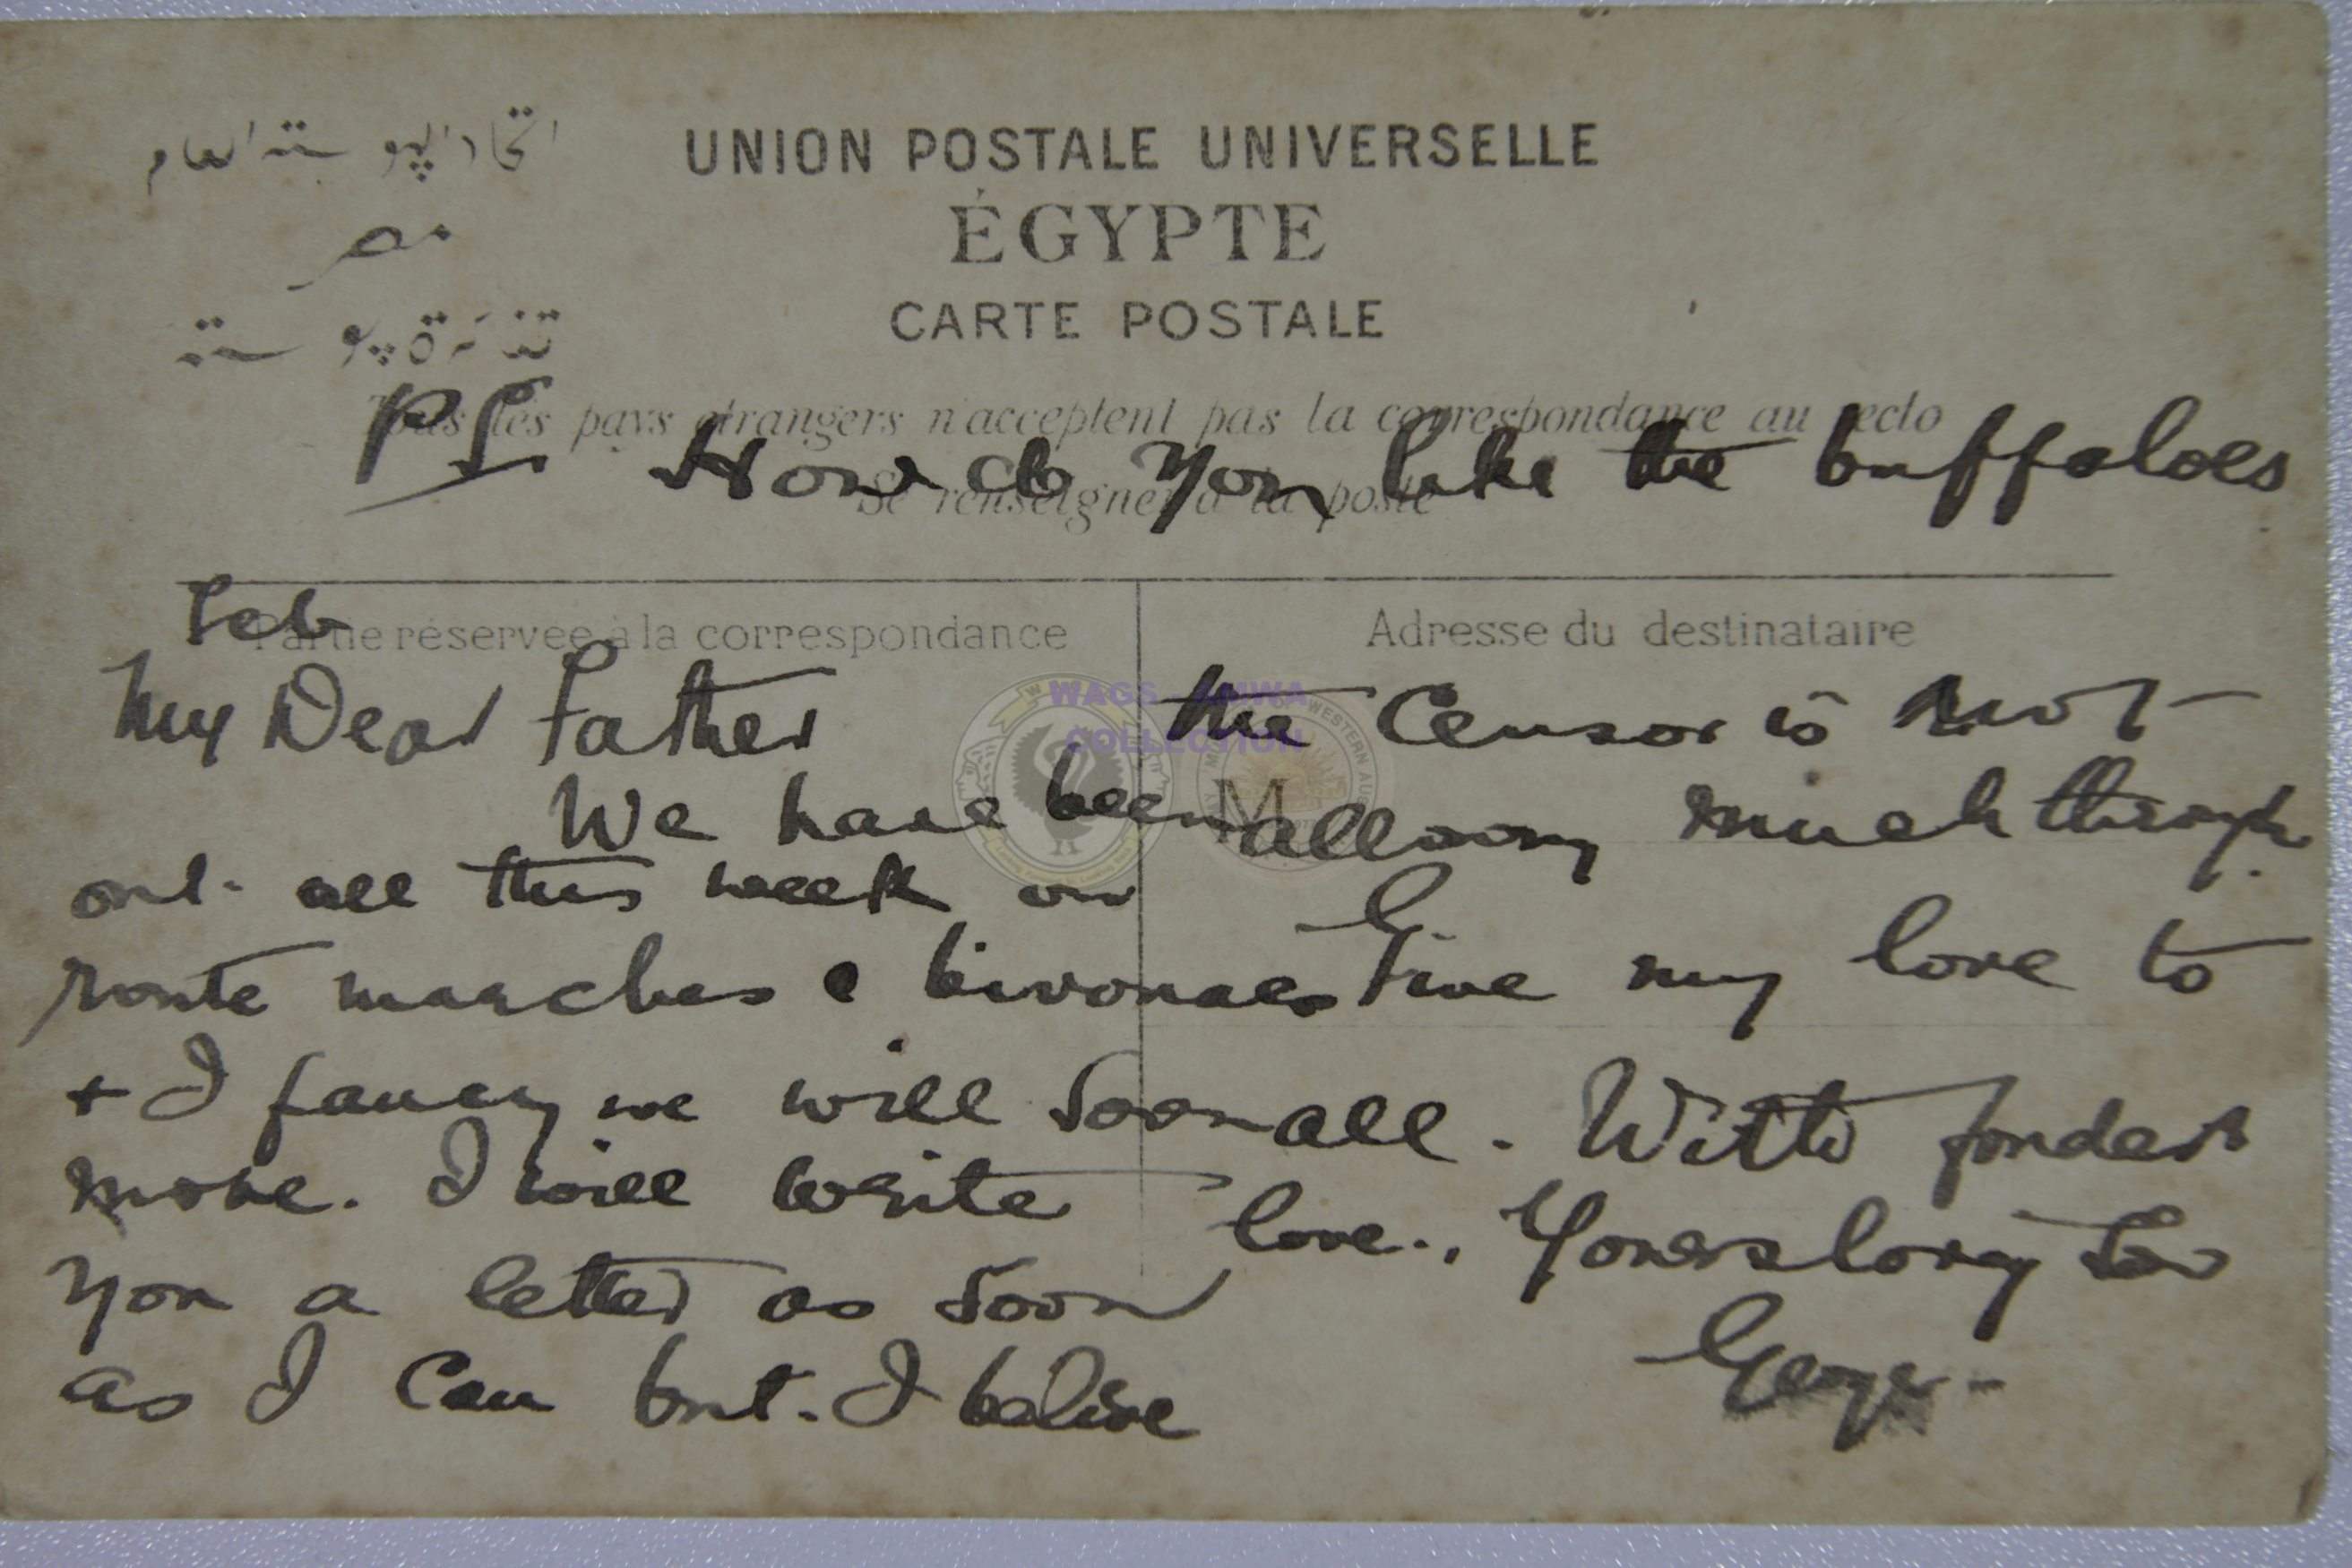 اتحاد البوستة العام
مصر
تذكرة بوستة
UNION POSTALE UNIVERSELLE
ÉGYPTE
CARTE POSTALE
Tous les pays etrangers n'acceptent pas la correspondance au recto
Se renseigner à la poste
PS How do you like the buffaloes
Partie réservée à la correspondance
Adresse du destinataire
M
Feb
My Dear Father
We have been
out all this week on
route marches & bivouacs
+ I fancy we will soon
move. I will write
you a letter as soon
as I can but I belive
the Censor is not
allowing much through
Give my love to
all. With fondest
love., Yours loving Son
George
WAGS - AMWA
COLLECTION